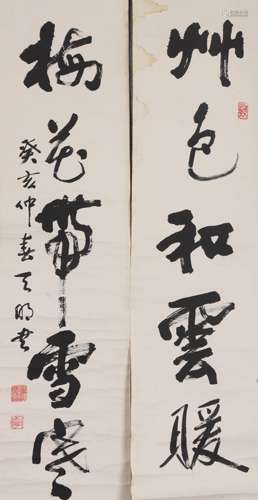 艸色和雲暖
梅花帶雪寒
癸亥仲春天明書